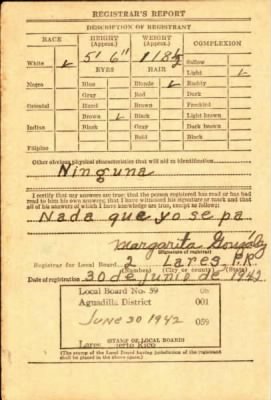 REGISTRAR'S REPORT
DESCRIPTION OF REGISTRANT
RACE HEIGHT (Approx.) WEIGHT (Approx.) COMPLEXION
5' 6" 118½
White ✓ EYES HAIR Sallow
Light ✓
Negro Blue Blonde ✓ Ruddy
Gray Red Dark
Oriental Hazel Brown Freckled
Brown ✓ Black Light brown
Indian Black Gray Dark brown
Bald Black
Filipino
Other obvious physical characteristics that will aid in identification
Ninguna
I certify that my answers are true; that the person registered has read or has had
read to him his own answers; that I have witnessed his signature or mark and that
all of his answers of which I have knowledge are true, except as follows:
Nada que yo sepa
Margarita González
(Signature of registrar)
Registrar for Local Board 2 Lares, P.R.
(Number) (City or county) (State)
Date of registration 30 de junio de 1942
Local Board No. 59
Aguadilla District 001
JUNE 30 1942 059
STAMP OF LOCAL BOARD
Lares
(The stamp of the Local Board having jurisdiction of the registrant
shall be placed in the above space.)